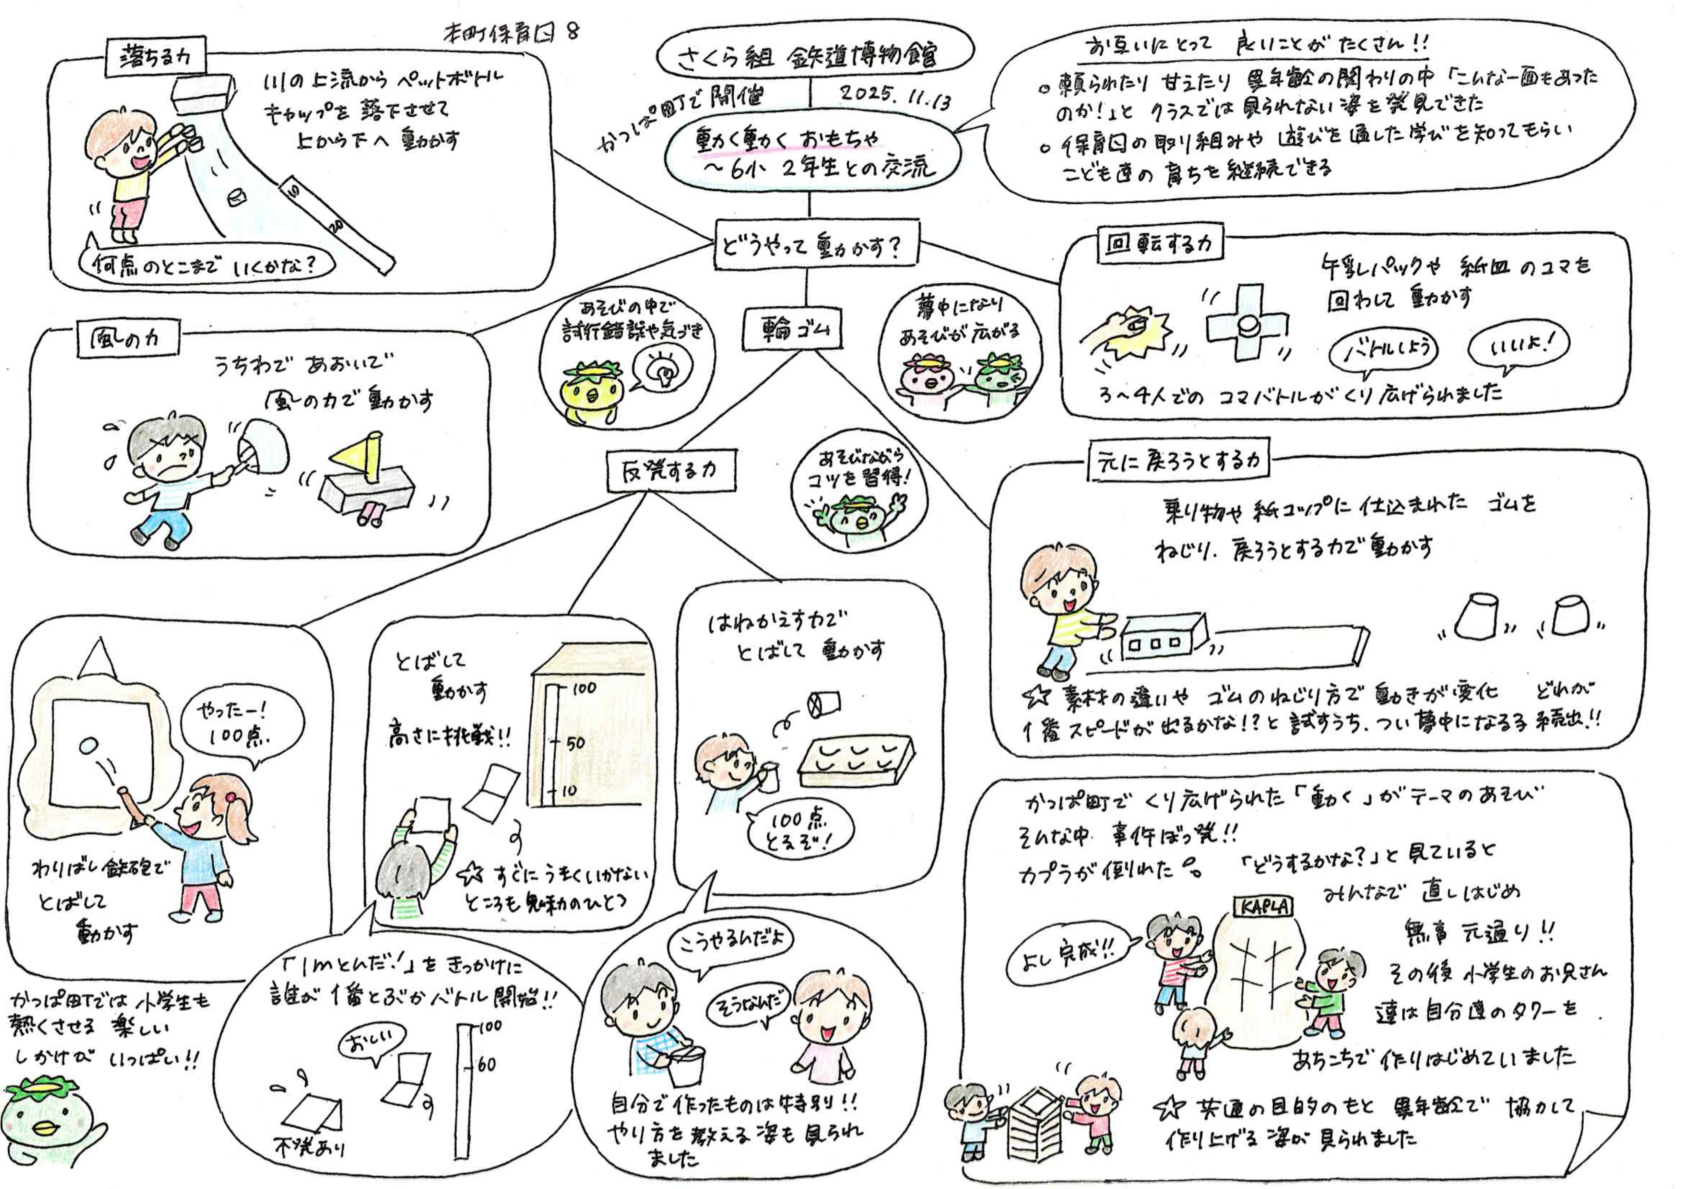 本町保育園 8
さくら組 鉄道博物館
かっぱ町で開催
2025.11.13
動く動く おもちゃ
～6小 2年生との交流
お互いにとって 良いことが たくさん!!
○ 頼られたり 甘えたり 異年齢の関わりの中「こんな一面もあった
のか!」と クラスでは見られない姿を発見できた
○ 保育園の取り組みや 遊びを通した学びを知ってもらい
こども達の 育ちを継続できる
落ちる力
川の上流から ペットボトル
キャップを 落下させて
上から下へ 動かす
10
20
何点のとこまで いくかな?
どうやって動かす?
回転する力
牛乳パックや 紙皿のコマを
回わして 動かす
バトルしよう
いいよ!
3～4人での コマバトルがくり広げられました
風の力
うちわで あおいで
風の力で動かす
あそびの中で
試行錯誤や気づき
輪ゴム
夢中になり
あそびが広がる
反発する力
あそびながら
コツを習得!
元に戻ろうとする力
乗り物や 紙コップに仕込まれた ゴムを
ねじり、戻ろうとする力で動かす
☆ 素材の違いや ゴムのねじり方で 動きが変化 どれが
1番スピードが出るかな!?と 試すうち、つい夢中になる子 続出!!
やったー!
100点
わりばし鉄砲で
とばして
動かす
とばして
動かす
高さに挑戦!!
100
50
10
☆ すぐにうまくいかない
ところも魅力のひとつ
はねかえす力で
とばして 動かす
100点
とるぞ!
かっぱ町では 小学生も
熱くさせる 楽しい
しかけが いっぱい!!
「1mとんだ!」を きっかけに
誰が 1番とぶか バトル開始!!
おしい
100
60
不発あり
こうやるんだよ
そうなんだ
自分で作ったものは特別!!
やり方を教える姿も見られ
ました
かっぱ町で くり広げられた「動く」がテーマのあそび
そんな中 事件ぼっ発!!
カプラが倒れた。 「どうするかな?」と見ていると
みんなで 直しはじめ
KAPLA
よし完成!!
無事 元通り!!
その後 小学生のお兄さん
達は自分達のタワーを
あちこちで 作りはじめていました
☆ 共通の目的のもと 異年齢で 協力して
作り上げる 姿が見られました